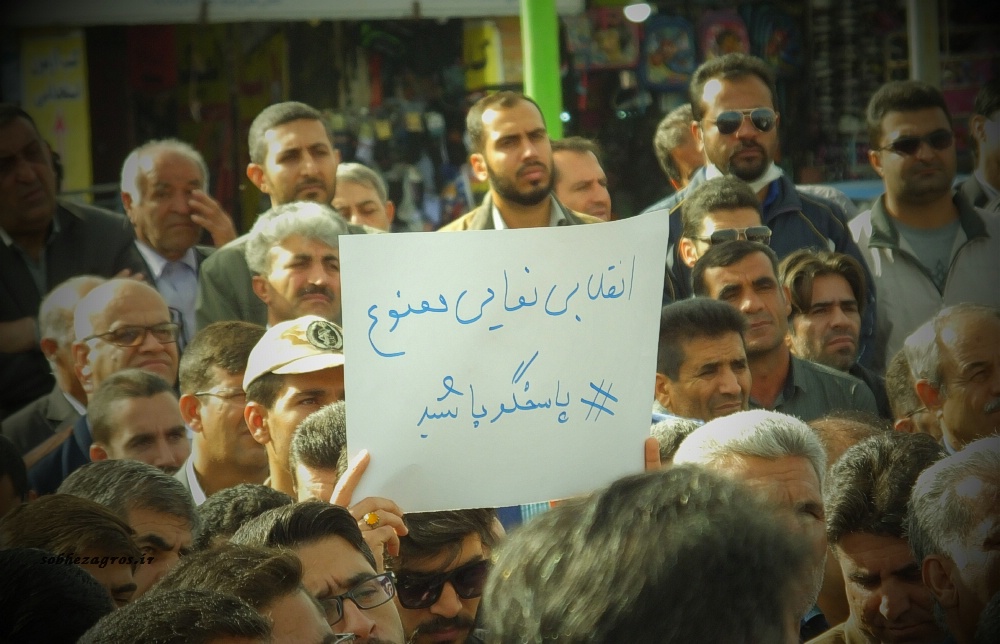 انقلابی نمایی ممنوع
#پاسخگو باشید
sobhezagros.ir